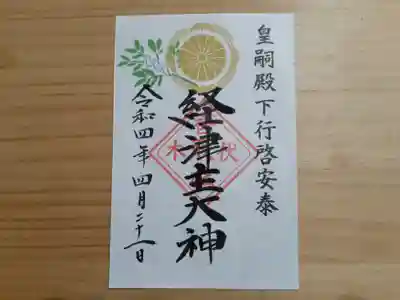 皇嗣殿下行啓安泰
経津主大神
令和四年四月二十一日